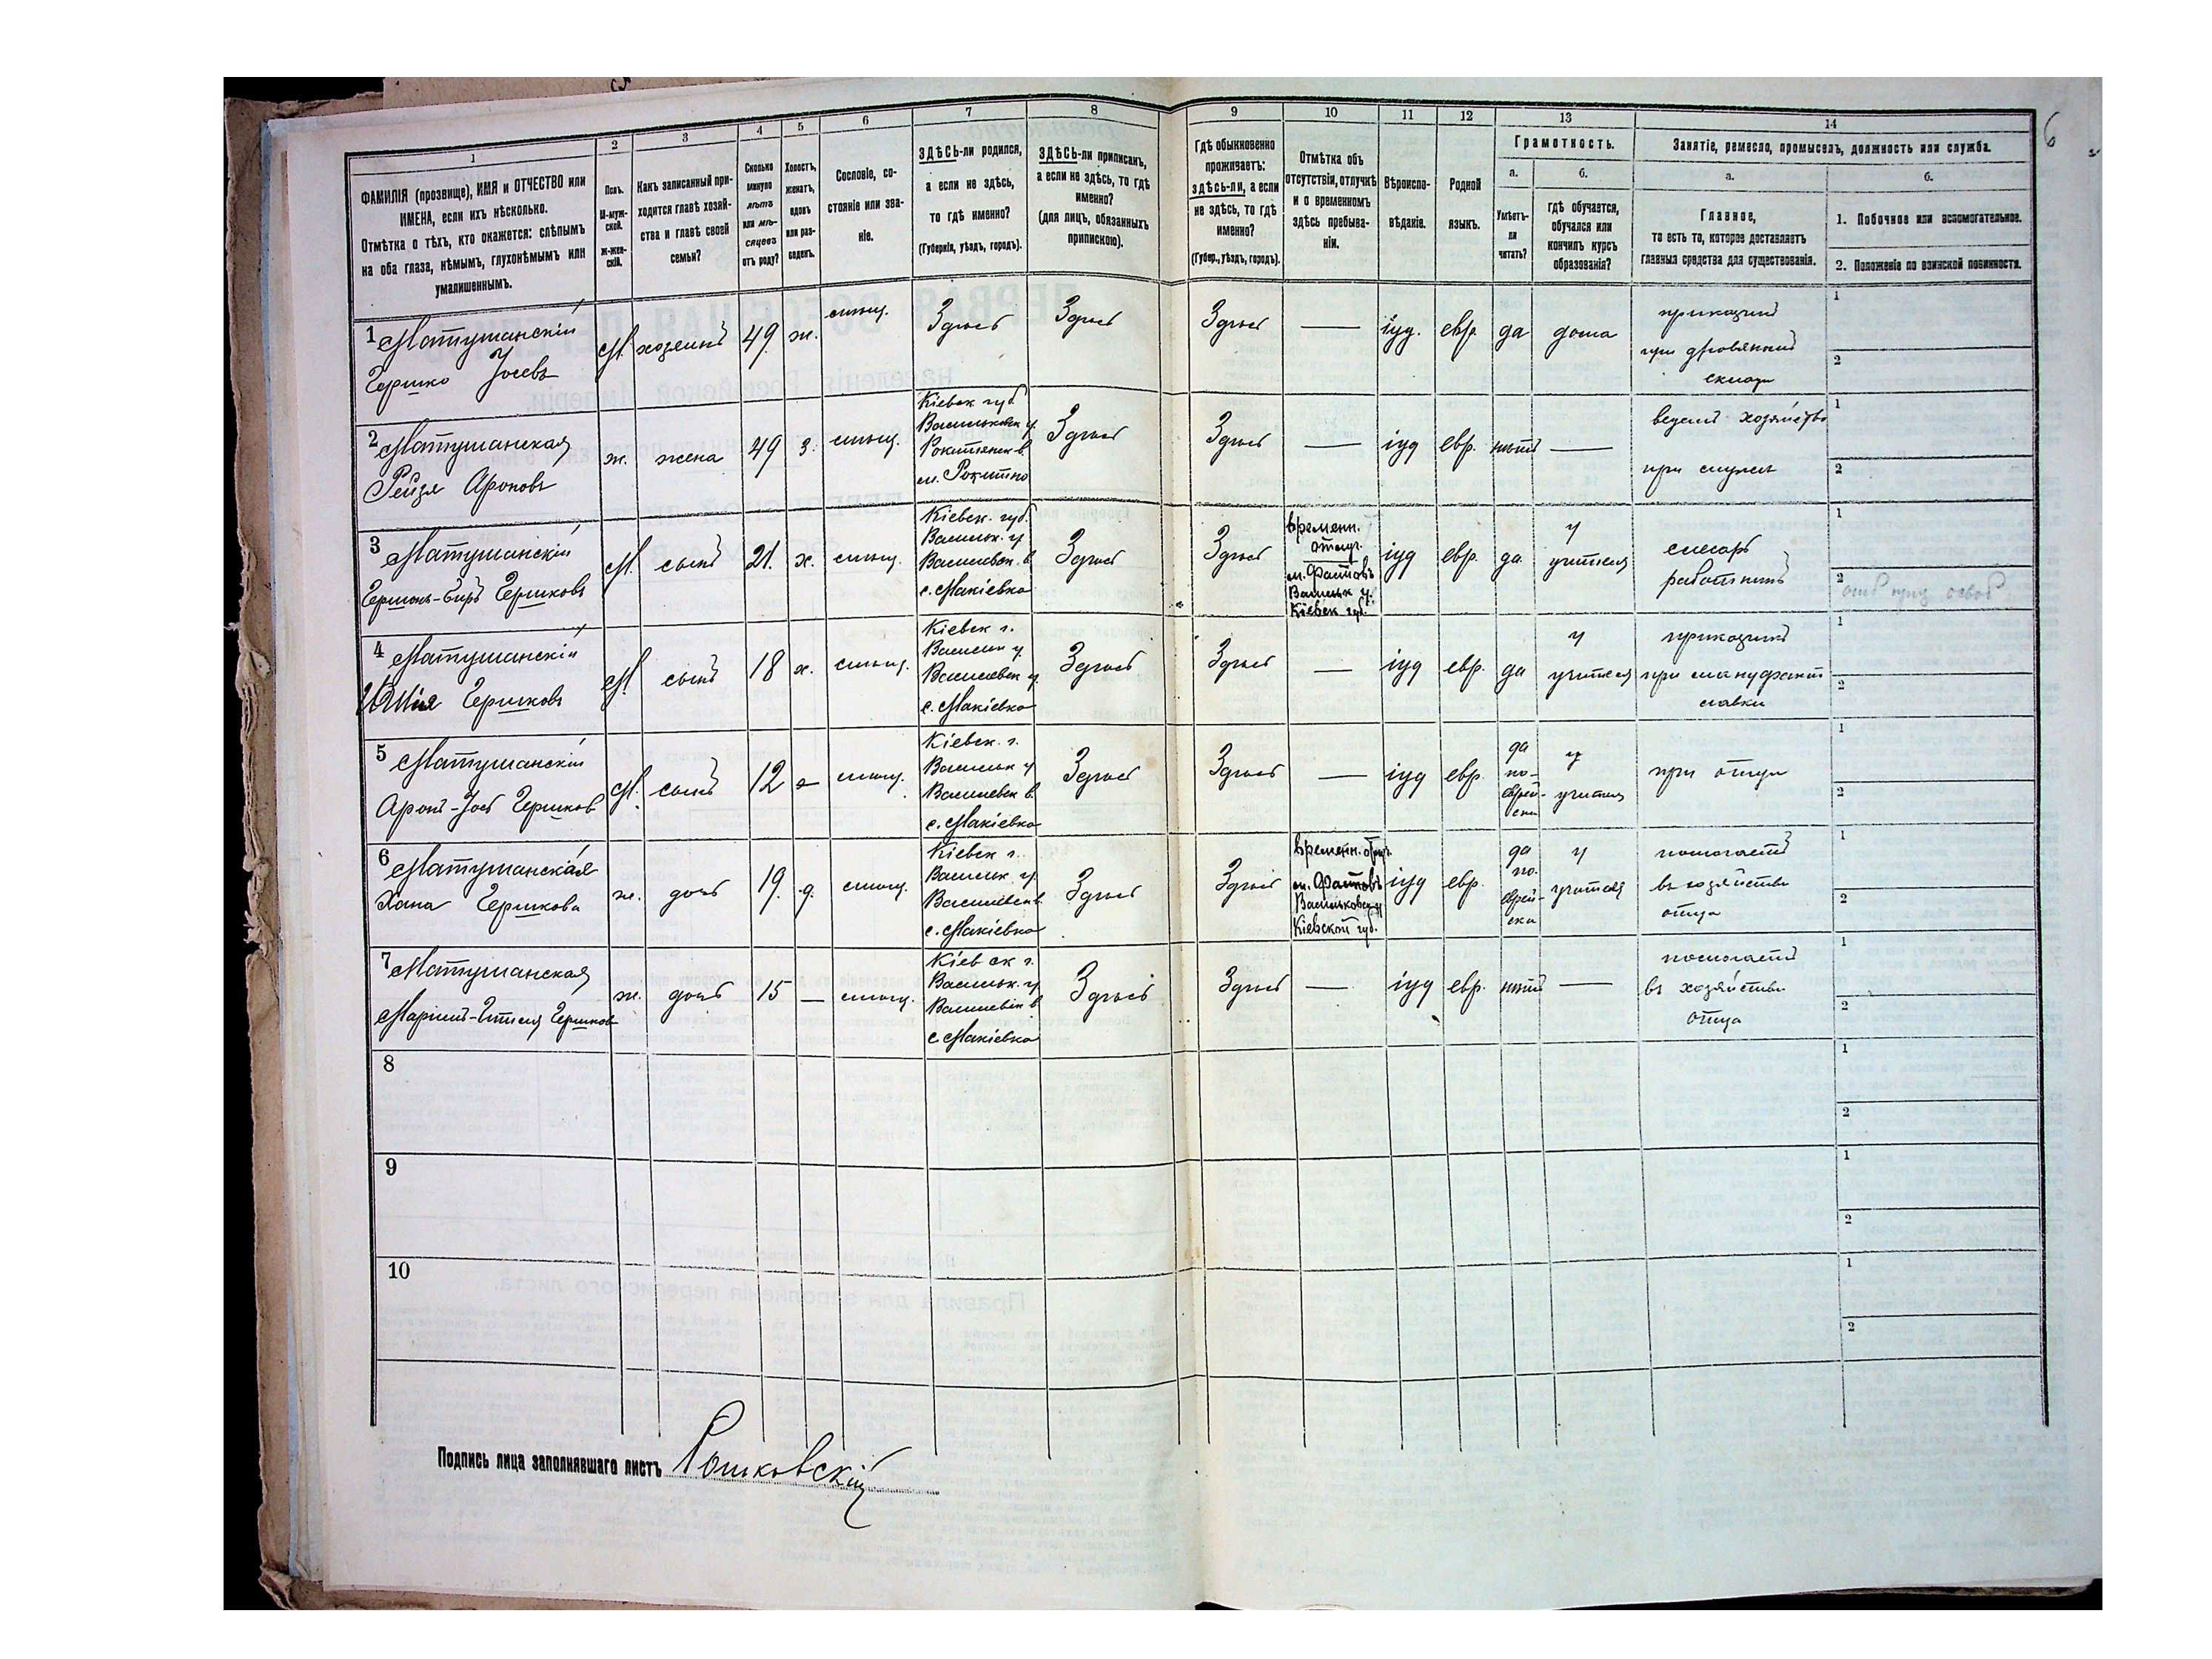 6
1 2 3 4 5 6 7 8 9 10 11 12 13 14
ФАМИЛІЯ (прозвище), ИМЯ и ОТЧЕСТВО или
ИМЕНА, если ихъ нѣсколько.
Отмѣтка о тѣхъ, кто окажется: слѣпымъ
на оба глаза, нѣмымъ, глухонѣмымъ или
умалишеннымъ.
Полъ.
М-муж-
ской.
Ж-жен-
скій.
Какъ записанный при-
ходится главѣ хозяй-
ства и главѣ своей
семьи?
Сколько
минуло
лѣтъ
или мѣ-
сяцевъ
отъ роду?
Холостъ,
женатъ,
вдовъ
или раз-
веденъ.
Сословіе, со-
стояніе или зва-
ніе.
ЗДѢСЬ-ли родился,
а если не здѣсь,
то гдѣ именно?
(Губернія, уѣздъ, городъ).
ЗДѢСЬ-ли приписанъ,
а если не здѣсь, то гдѣ
именно?
(для лицъ, обязанныхъ
припискою).
Гдѣ обыкновенно
проживаетъ:
здѣсь-ли, а если
не здѣсь, то гдѣ
именно?
(Губер., уѣздъ, городъ).
Отмѣтка объ
отсутствіи, отлучкѣ
и о временномъ
здѣсь пребыва-
ніи.
Вѣроиспо-
вѣданіе.
Родной
языкъ.
Грамотность.
а.
Умѣетъ-
ли
читать?
б.
гдѣ обучается,
обучался или
кончилъ курсъ
образованія?
Занятіе, ремесло, промыселъ, должность или служба.
а.
Главное,
то есть то, которое доставляетъ
главныя средства для существованія.
б.
1. Побочное или вспомогательное.
2. Положеніе по воинской повинности.
1 Матушанскій
Гершко Іосевъ
М. хозяинъ 49 ж.
Здѣсь Здѣсь Здѣсь — іуд. евр. да дома
приказчикъ
при дровяномъ
складѣ
1
2
2 Матушанская
Рейзя Ароновъ
ж. жена 49 з.
Кіевск губ.
Васильковск у.
Рокитянск в.
м. Рокитно
Здѣсь Здѣсь — іуд евр. нѣтъ —
ведетъ хозяйство
при мужѣ
1
2
3 Матушанскій
Гершковъ
М. сынъ 21. х.
Кіевск. губ.
Васильк. у
с. Макіевка
Здѣсь Здѣсь
временн.
отлуч.
м. Фастовъ
Васильк у.
Кіевск губ.
іуд евр. да
у
учителя
слесарь
работникъ
1
2
4 Матушанскій
Гершковъ
М. сынъ 18 х.
Кіевск г.
Васильк у
с. Макіевка
Здѣсь Здѣсь — іуд евр. да
у
учителя
приказчикъ
при мануфакт
лавки
1
2
5 Матушанскій
Аронъ-Іось Гершков
М. сынъ 12
Кіевск. г.
Васильк у
с. Макіевка
Здѣсь Здѣсь — іуд евр.
да
по-
еврей-
ски
у
учителя
при отцѣ
1
2
6 Матушанская
Хана Гершкова
ж. дочь 19. д.
Кіевск г.
Васильк у.
с. Макіевка
Здѣсь Здѣсь
временн. отлуч.
м. Фастовъ
Васильковск у
Кіевской губ.
іуд евр.
да
по
еврей-
ски
у
учителя
помогаетъ
въ хозяйствѣ
отца
1
2
7 Матушанская
Гершков
ж. дочь 15 —
Кіевск г.
Васильк. у
с Макіевка
Здѣсь Здѣсь — іуд евр. нѣтъ —
помогаетъ
въ хозяйствѣ
отца
1
2
8
1
2
9
1
2
10
1
2
Подпись лица заполнявшаго листъ